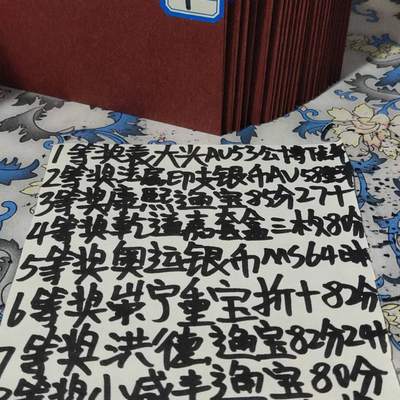 1等奖袁大头AU53公博
2等奖法属印支银币AU58
3等奖康熙通宝85分27十
4等奖乾隆
三枚80分
5等奖奥运银币MS64
6等奖崇宁重宝折十82分
7等奖洪德通宝82分24
等奖小咸丰通宝80分